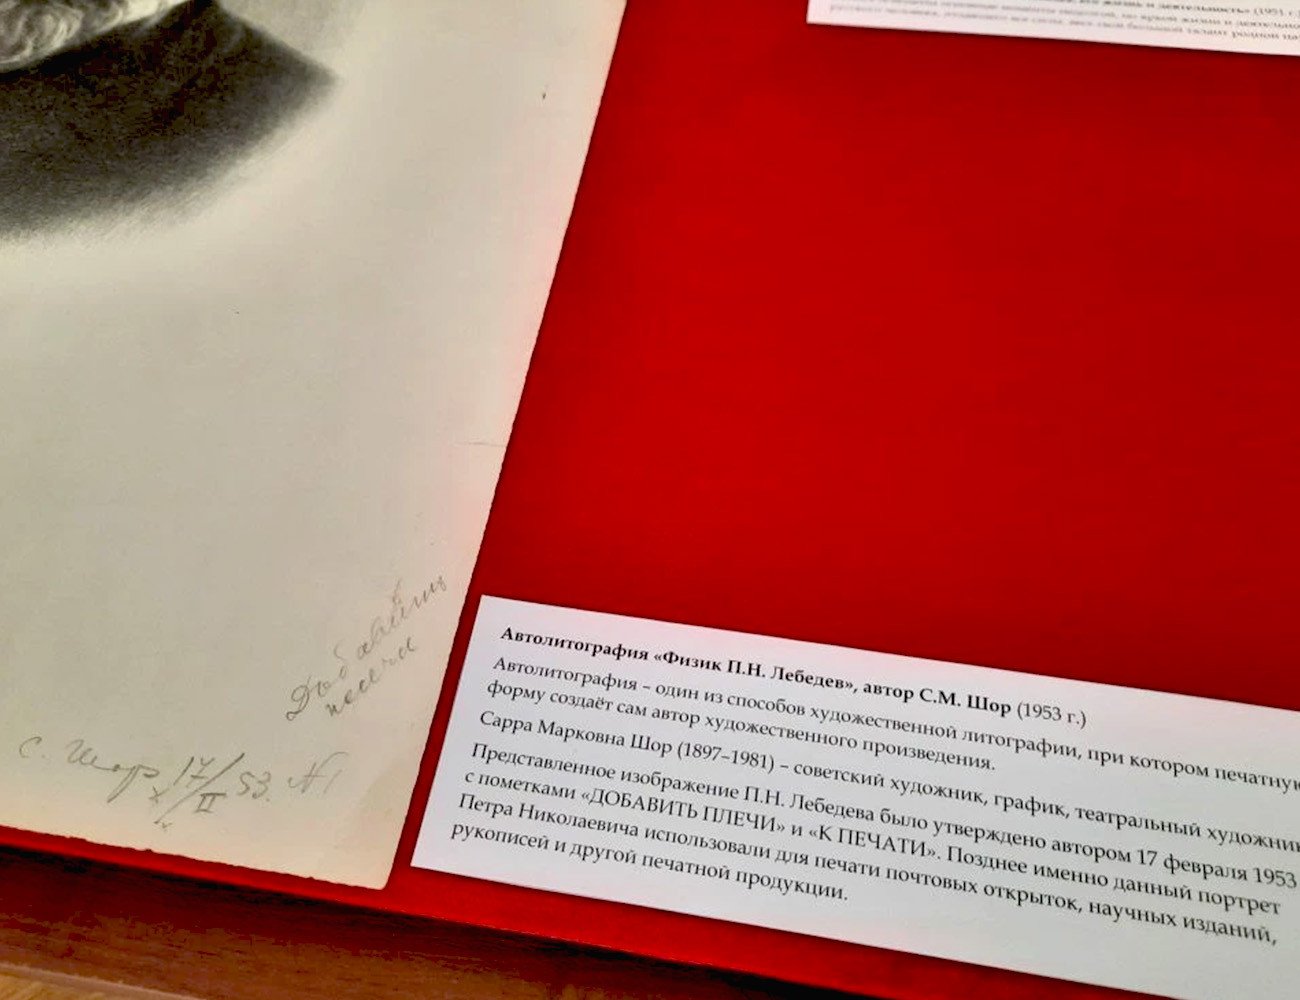 его жизнь и деятельность» (1951 г.)
Добавить
плечи
С. Шор 17/II 53. №1
Автолитография «Физик П.Н. Лебедев», автор С.М. Шор (1953 г.)
Автолитография – один из способов художественной литографии, при котором печатную
форму создаёт сам автор художественного произведения.
Сарра Марковна Шор (1897–1981) – советский художник, график, театральный художник
Представленное изображение П.Н. Лебедева было утверждено автором 17 февраля 1953
с пометками «ДОБАВИТЬ ПЛЕЧИ» и «К ПЕЧАТИ». Позднее именно данный портрет
Петра Николаевича использовали для печати почтовых открыток, научных изданий,
рукописей и другой печатной продукции.